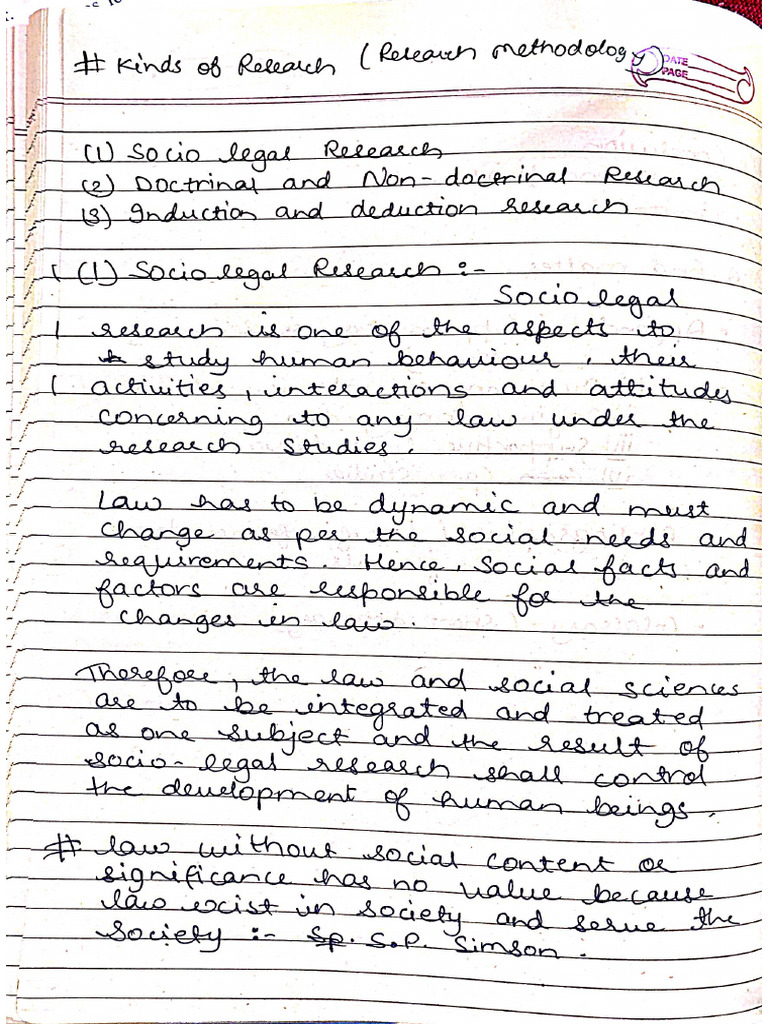 # Kinds of Research (Research methodology)
DATE
PAGE
(1) Socio legal Research
(2) Doctrinal and Non-doctrinal Research
(3) Induction and deduction research
(1) Socio legal Research :-
Socio legal
research is one of the aspects to
study human behaviour, their
activities, interactions and attitudes
concerning to any law under the
research studies.
Law has to be dynamic and must
change as per the social needs and
requirements. Hence, social facts and
factors are responsible for the
changes in law.
Therefore, the law and social sciences
are to be integrated and treated
as one subject and the result of
socio-legal research shall control
the development of human beings.
# law without social content or
significance has no value because
law exist in society and serve the
society :- Sp. S.P. Simson.